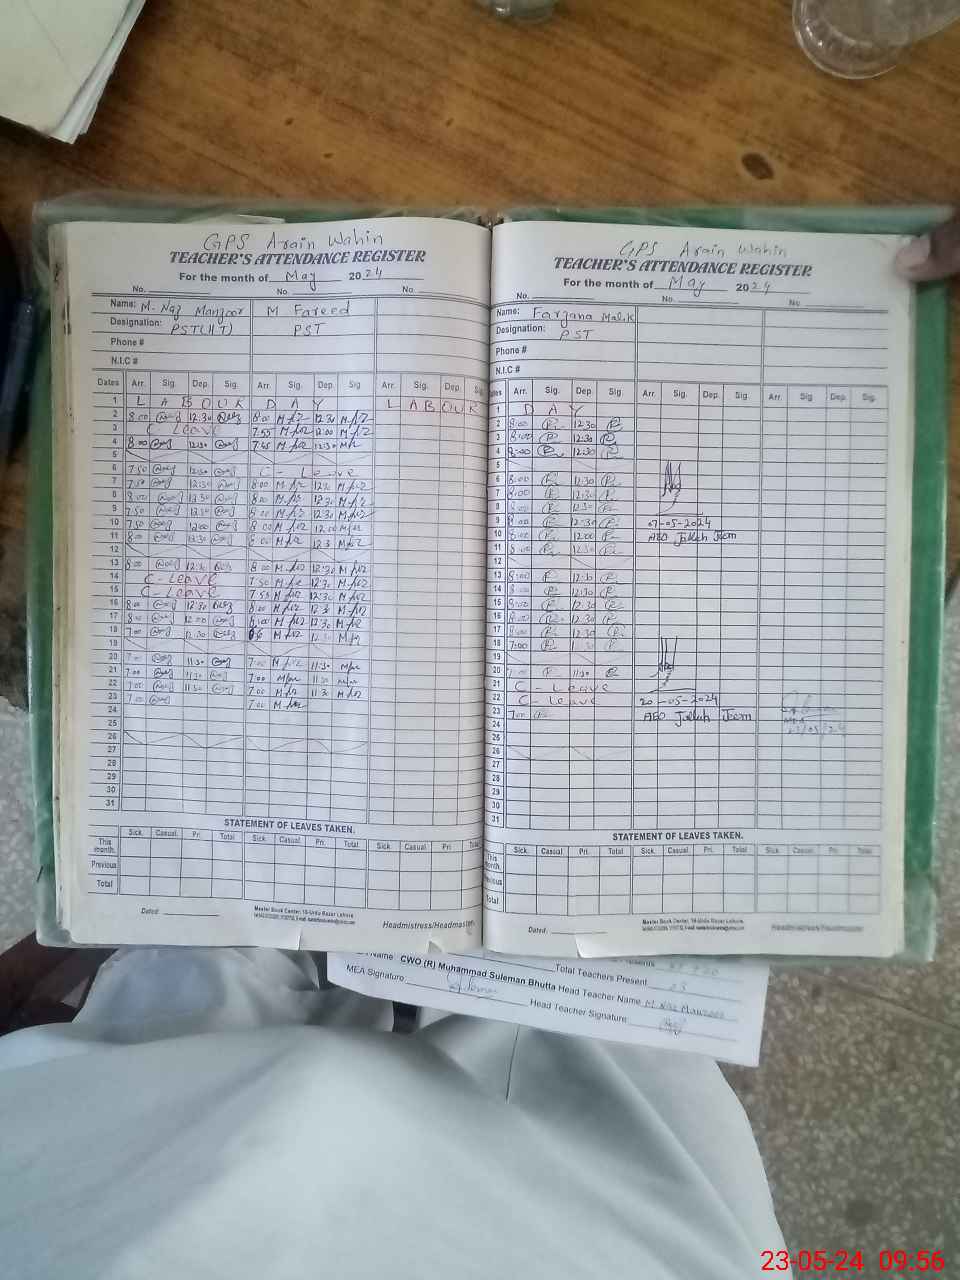 GPS Arain Wahin
TEACHER'S ATTENDANCE REGISTER
For the month of May 2024
No. No. No.
Name: M. Naz Manzoor M Fareed
Designation: PST(IIT) PST
Phone #
N.I.C #
Dates Arr. Sig. Dep. Sig. Arr. Sig. Dep. Sig Arr. Sig. Dep. Sig.
1 LABOUR DAY LABOUR
2 8:00 12:30 8:00 12:30
3 C-Leave 7:55 12:00
4 8:00 12:30 7:45 12:30
5
6 7:50 12:30 C-Leave
7 7:50 12:30 8:00 12:30
8 8:00 12:30 8:00 12:30
9 7:50 12:30 8:00 12:30
10 7:50 12:00 8:00 12:00
11 8:00 12:30 8:00 12:3
12
13 8:00 12:30 8:00 12:30
14 C-Leave 7:50 12:30
15 C-Leave 7:55 12:30
16 8:00 12:30 8:00 12:3
17 8:00 12:00 8:00 12:30
18 7:00 12:30 12:30
19
20 7:00 11:30 7:00 11:30
21 7:00 11:30 7:00 11:30
22 7:00 11:30 7:00 11:30
23 7:00 7:00
24
25
26
27
28
29
30
31
STATEMENT OF LEAVES TAKEN.
Sick. Casual. Pri. Total Sick. Casual. Pri. Total. Sick. Casual Pri. Total
This month.
Previous
Total
Dated:
Master Book Center, 18-Urdu Bazar Lahore
Headmistress/Headmaster.
GPS Arain Wahin
TEACHER'S ATTENDANCE REGISTER
For the month of May 2024
No. No. No.
Name: Farzana Malik
Designation: PST
Phone #
N.I.C #
Dates Arr. Sig. Dep. Sig. Arr. Sig. Dep. Sig. Arr. Sig. Dep. Sig.
1 DAY
2 8:00 12:30
3 8:00 12:30
4 8:00 12:30
5
6 8:00 12:30
7 8:00 12:30
8 8:00 12:30
9 8:00 12:30 07-05-2024
10 8:00 12:00 AEO Jalleh Jeem
11 8:00 12:30
12
13 8:00 12:30
14 8:00 12:30
15 8:00 12:30
16 8:00 12:30
17 8:00 12:30
18 7:00
19
20 7:00 11:30
21 C-Leave
22 C-Leave 20-05-2024
23 7:00 AEO Jalleh Jeem
24 MEA
25 23/05/24
26
27
28
29
30
31
STATEMENT OF LEAVES TAKEN.
Sick. Casual. Pri. Total Sick. Casual. Pri. Total Sick. Casual. Pri. Total
This month.
Previous
Total
Dated:
Master Book Center, 18-Urdu Bazar Lahore.
Headmistress/Headmaster
Total Teachers Present 03
Name CWO (R) Muhammad Suleman Bhutta Head Teacher Name M. Naz Manzoor
MEA Signature Head Teacher Signature
23-05-24 09:56